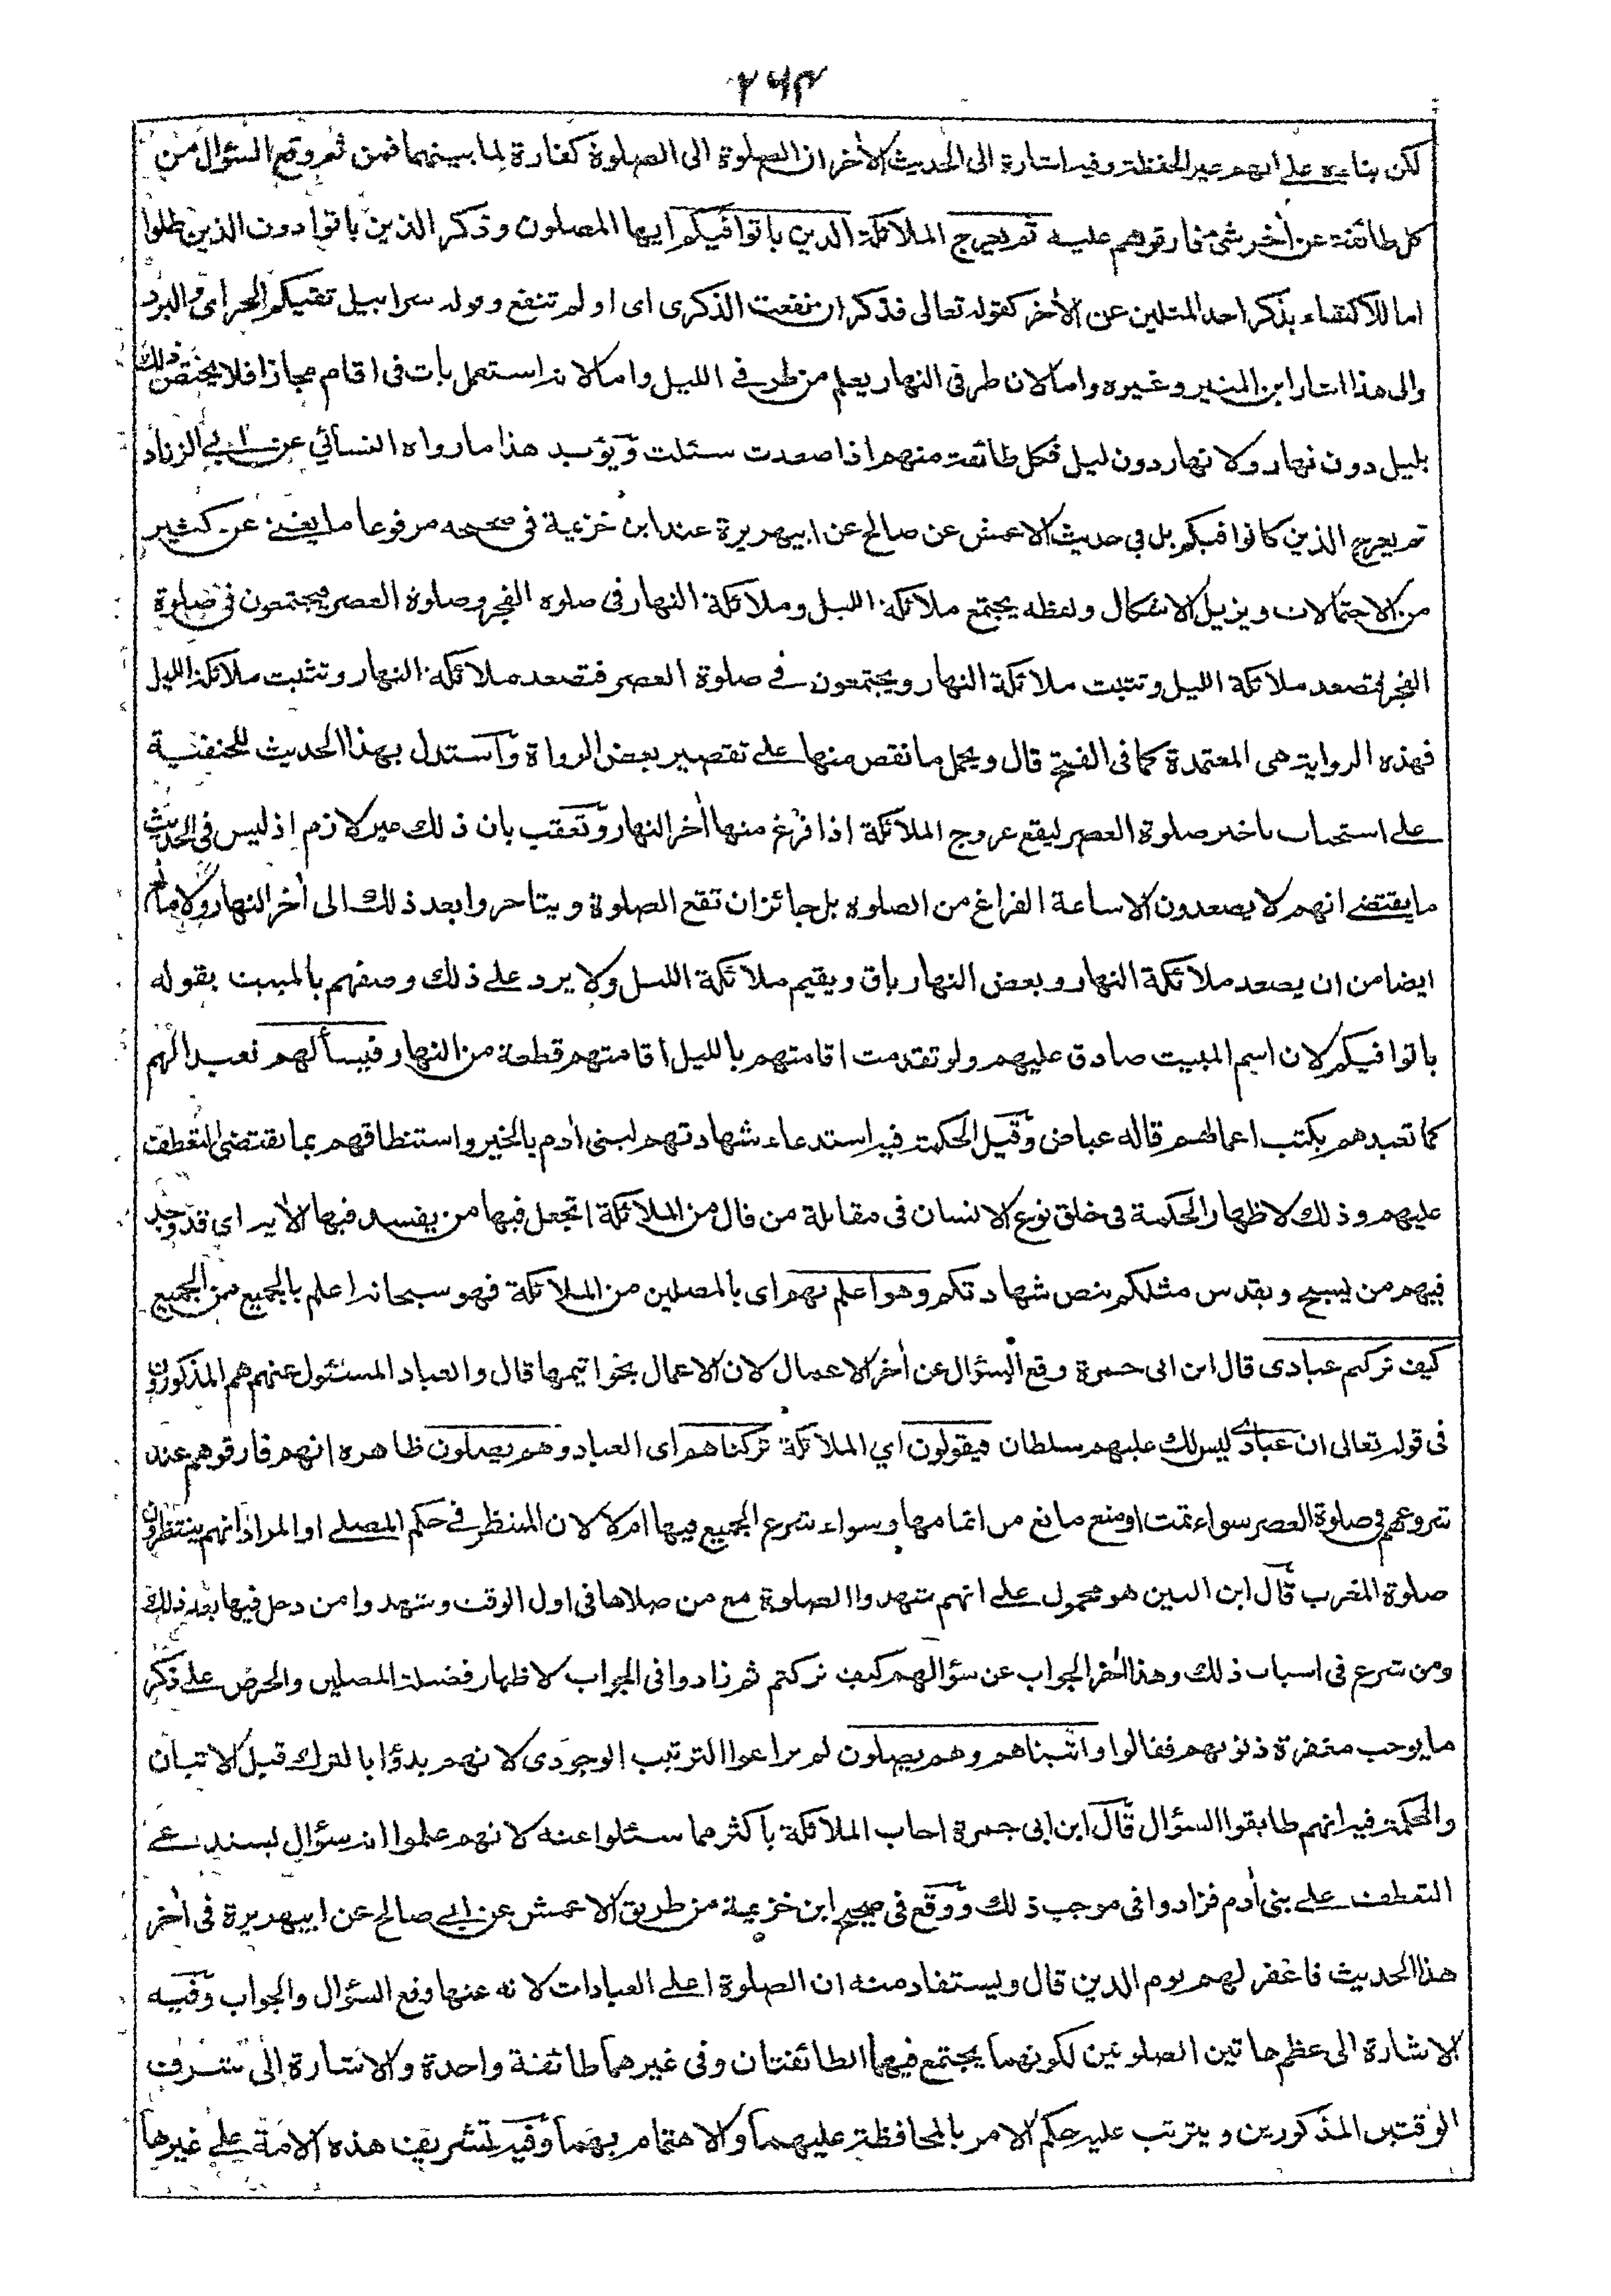 ٢٦٣
لكن بناءه على انهم غير الحفظة وفيه اشارة الى الحديث الآخر ان الصلوة الى الصلوة كفارة لما بينهما فمن ثم وقع السؤال من
كل طائفة عن أخر شئ فارقوهم عليه ثم يعرج الملائكة الذين باتوا فيكم ايها المصلون وذكر الذين باتوا دون الذين ظلوا
اما للاكتفاء بذكر احد المثلين عن الآخر كقوله تعالى فذكر ان نفعت الذكرى اى او لم تنفع وقوله سرابيل تقيكم الحر اى والبرد
والى هذا اشار ابن المنير وغيره واما لان طرفى النهار يعلم من طرفى الليل واما لانه استعمل بات فى اقام مجازا فلا يختص ذلك
بليل دون نهار ولا نهار دون ليل فكل طائفة منهم اذا صعدت سئلت ويؤيد هذا ما رواه النسائي عن ابى الزناد
ثم يعرج الذين كانوا فيكم بل في حديث الاعمش عن صالح عن ابيهريرة عند ابن خزيمة فى صحيحه مرفوعا ما يغنى عن كثير
من الاحتمالات ويزيل الاشكال ولفظه يجتمع ملائكة الليل وملائكة النهار فى صلوة الفجر وصلوة العصر فيجتمعون فى صلوة
الفجر فتصعد ملائكة الليل وتثبت ملائكة النهار ويجتمعون فى صلوة العصر فتصعد ملائكة النهار وتثبت ملائكة الليل
فهذه الرواية هى المعتمدة كما فى الفتح قال ويحمل ما نقص منها على تقصير بعض الرواة واستدل بهذا الحديث للحنفية
على استحباب تاخير صلوة العصر ليقع عروج الملائكة اذا فرغ منها أخر النهار وتعقب بان ذلك غير لازم اذ ليس فى الحديث
ما يقتضى انهم لا يصعدون الا ساعة الفراغ من الصلوة بل جائز ان تقع الصلوة ويتاخروا بعد ذلك الى أخر النهار ولا مانع
ايضا من ان يصعد ملائكة النهار وبعض النهار باق ويقيم ملائكة الليل ولا يرد على ذلك وصفهم بالمبيت بقوله
باتوا فيكم لان اسم المبيت صادق عليهم ولو تقدمت اقامتهم بالليل اقامتهم قطعة من النهار فيسألهم تعبدا لهم
كما تعبدهم بكتب اعمالهم قاله عياض وقيل الحكمة فيه استدعاء شهادتهم لبنى أدم بالخير واستنطاقهم بما يقتضى التعطف
عليهم وذلك لاظهار الحكمة فى خلق نوع الانسان فى مقابلة من قال من الملائكة اتجعل فيها من يفسد فيها الأية اى قد وجد
فيهم من يسبح ويقدس مثلكم بنص شهادتكم وهو اعلم بهم اى بالمصلين من الملائكة فهو سبحانه اعلم بالجميع من الجميع
كيف تركتم عبادى قال ابن ابى جمرة وقع السؤال عن أخر الاعمال لان الاعمال بخواتيمها قال والعباد المسئول عنهم هم المذكورون
فى قوله تعالى ان عبادى ليس لك عليهم سلطان فيقولون اي الملائكة تركناهم اى العباد وهم يصلون ظاهره انهم فارقوهم عند
شروعهم فى صلوة العصر سواء تمت او منع مانع من اتمامها وسواء شرع الجميع فيها ام لا لان المنتظر فى حكم المصلى او المراد انهم ينتظرون
صلوة المغرب قال ابن التين هو محمول على انهم شهدوا الصلوة مع من صلاها فى اول الوقت وشهدوا من دخل فيها بعد ذلك
ومن شرع فى اسباب ذلك وهذا أخر الجواب عن سؤالهم كيف تركتم ثم زادوا فى الجواب لاظهار فضيلة المصلين والحرص على ذكر
ما يوجب مغفرة ذنوبهم فقالوا واتيناهم وهم يصلون لم يراعوا الترتيب الوجودى لانهم بدؤا بالترك قبل الاتيان
والحكمة فيه انهم طابقوا السؤال قال ابن ابى جمرة اجاب الملائكة باكثر مما سئلوا عنه لانهم علموا انه سؤال يستدعى
التعطف على بنى أدم فزادوا فى موجب ذلك ووقع فى صحيح ابن خزيمة من طريق الاعمش عن ابى صالح عن ابيهريرة فى أخر
هذا الحديث فاغفر لهم يوم الدين قال ويستفاد منه ان الصلوة اعلى العبادات لانه عنها وقع السؤال والجواب وفيه
الاشارة الى عظم هاتين الصلوتين لكونهما يجتمع فيهما الطائفتان وفى غيرهما طائفة واحدة والاشارة الى شرف
الوقتين المذكورين ويترتب عليه حكم الامر بالمحافظة عليهما والاهتمام بهما وفيه تشريف هذه الامة على غيرها